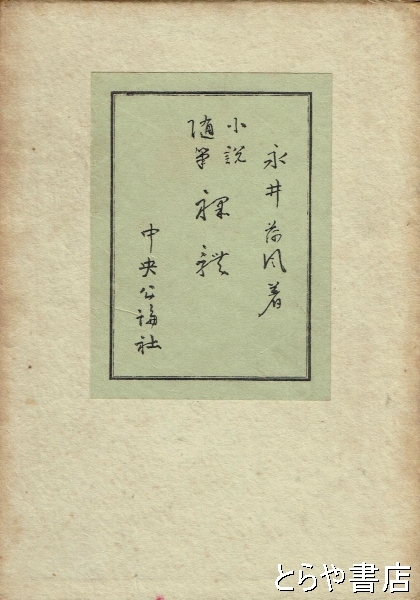 永井荷風著
小説
随筆
裸體
中央公論社
とらや書店